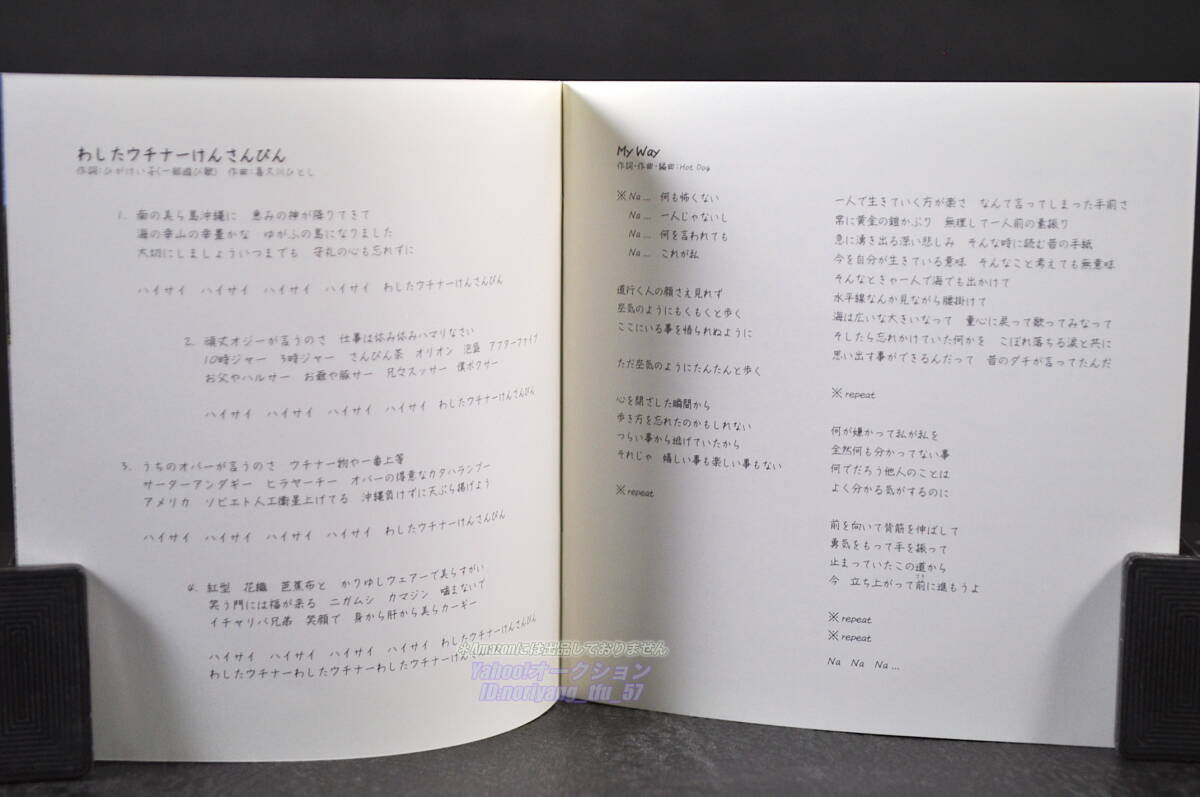 わしたウチナーけんさんぴん
作詞:ひがけい子(一部遊び歌) 作曲:喜久川ひとし
1. 南の美ら島沖縄に 恵みの神が降りてきて
海の幸山の幸豊かな ゆがふの島になりました
大切にしましょういつまでも 守礼の心も忘れずに
ハイサイ ハイサイ ハイサイ ハイサイ わしたウチナーけんさんぴん
2. 頑丈オジーが言うのさ 仕事は休み休みハマリなさい
10時ジャー 3時ジャー さんぴん茶 オリオン 泡盛 アフターファイブ
お父やハルサー お爺や豚サー 兄々スッサー 僕ボクサー
ハイサイ ハイサイ ハイサイ ハイサイ わしたウチナーけんさんぴん
3. うちのオバーが言うのさ ウチナー物や一番上等
サーターアンダギー ヒラヤーチー オバーの得意なカタハランブー
アメリカ ソビエト人工衛星上げてる 沖縄負けずに天ぷら揚げよう
ハイサイ ハイサイ ハイサイ ハイサイ わしたウチナーけんさんぴん
4. 紅型 花織 芭蕉布と かりゆしウェアーで美らすがい
笑う門には福が来る ニガムシ カマジン 噛まないで
イチャリバ兄弟 笑顔で 身から肝から美らカーギー
ハイサイ ハイサイ ハイサイ ハイサイ わしたウチナーけんさんぴん
わしたウチナーわしたウチナーわしたウチナーけんさんぴん
My Way
作詞・作曲・編曲:Hot Dog
※ Na… 何も怖くない
Na… 一人じゃないし
Na… 何を言われても
Na… これが私
道行く人の顔さえ見れず
空気のようにもくもくと歩く
ここにいる事を悟られぬように
ただ空気のようにたんたんと歩く
心を閉ざした瞬間から
歩き方を忘れたのかもしれない
つらい事から逃げていたから
それじゃ 嬉しい事も楽しい事もない
※ repeat
一人で生きていく方が楽さ なんて言ってしまった手前さ
常に黄金の鎧かぶり 無理して一人前の素振り
急に湧き出る深い悲しみ そんな時に読む昔の手紙
今を自分が生きている意味 そんなこと考えても無意味
そんなときゃ一人で海でも出かけて
水平線なんか見ながら腰掛けて
海は広いな大きいなって 童心に戻って歌ってみなって
そしたら忘れかけていた何かを こぼれ落ちる涙と共に
思い出す事ができるんだって 昔のダチが言ってたんだ
※ repeat
何が嫌かって私が私を
全然何も分かってない事
何でだろう他人のことは
よく分かる気がするのに
前を向いて背筋を伸ばして
勇気をもって手を振って
止まっていたこの道から
今 立ち上がって前に進もうよ
※ repeat
※ repeat
Na Na Na…
※Amazonには出品しておりません
Yahoo!オークション
ID:noriyang_tfu_57